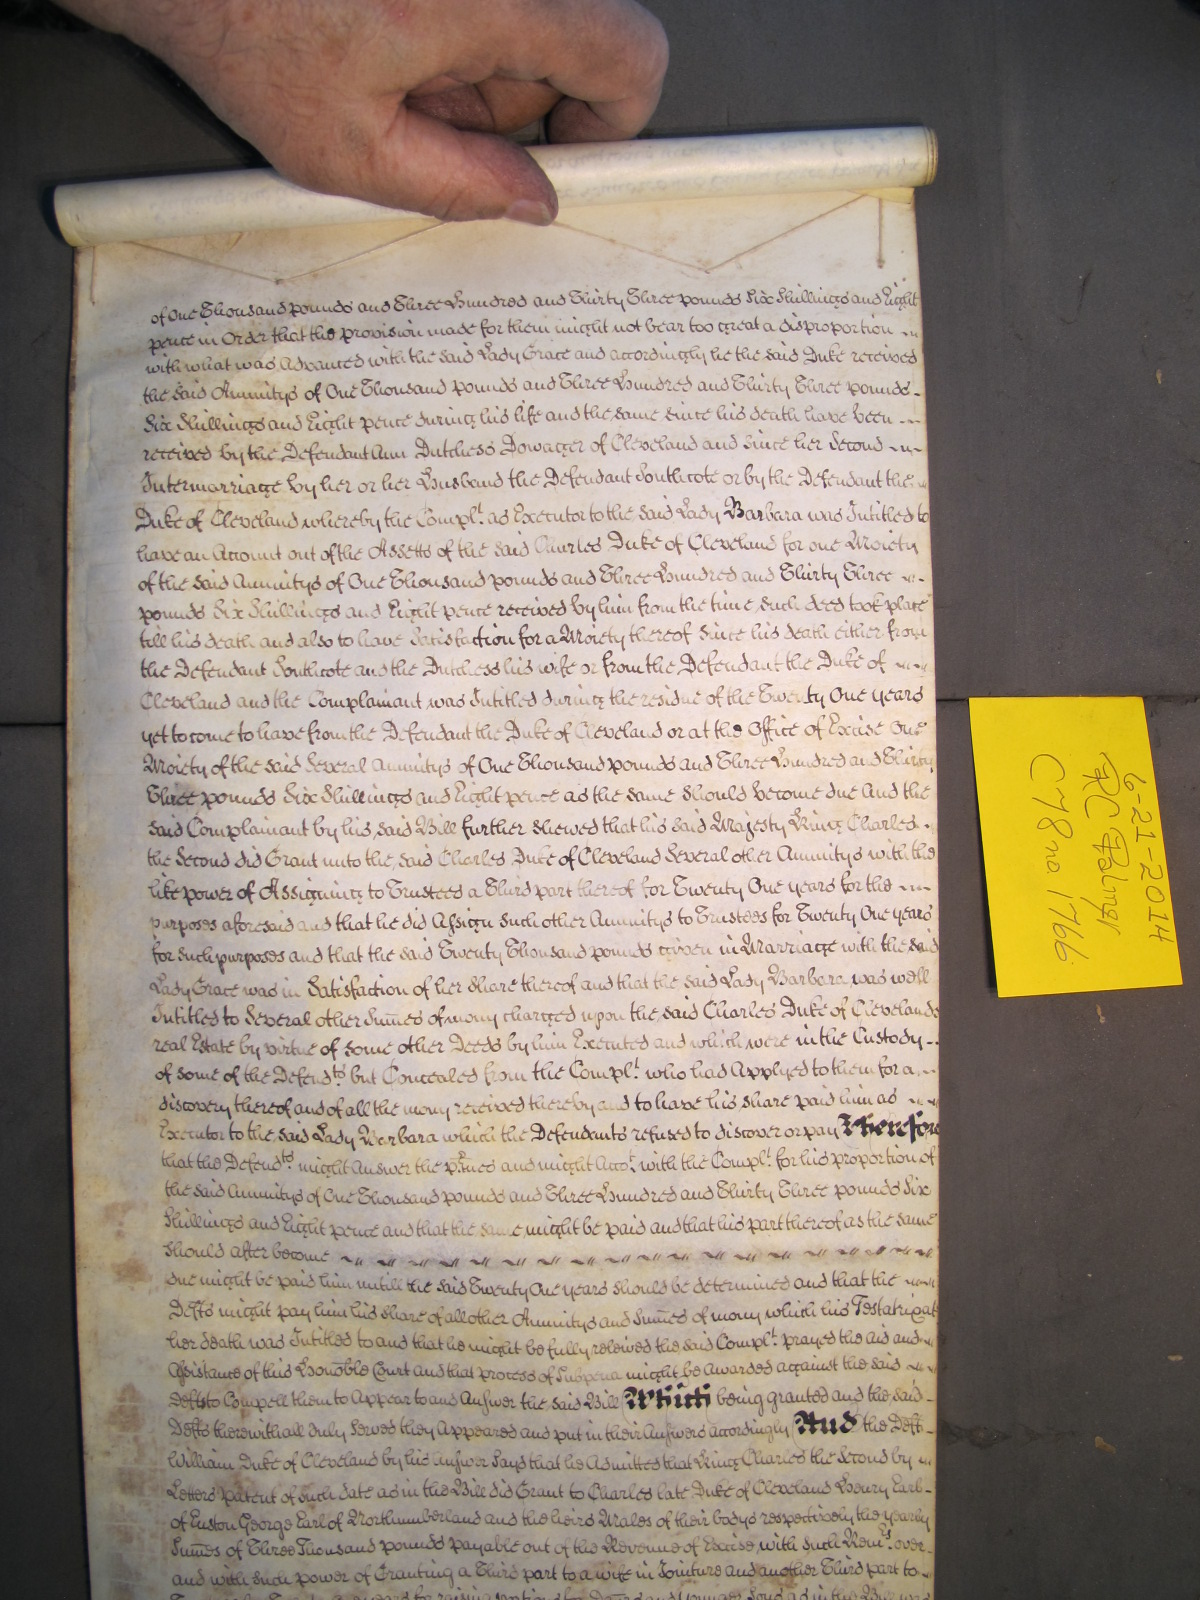 of One Thousand pounds and Three Hundred and Thirty Three pounds Six Shillings and Eight
pence in Order that the provision made for them might not bear too great a disproportion
with what was Advanced with the said Lady Grace and accordingly he the said Duke received
the said Annuitys of One Thousand pounds and Three Hundred and Thirty Three pounds
Six Shillings and Eight pence during his life and the same since his death have been
received by the Defendant Ann Dutchess Dowager of Cleveland and since her Second
Intermarriage by her or her Husband the Defendant Southcote or by the Defendant the
Duke of Cleveland whereby the Compl.t as Executor to the said Lady Barbara was Intitled to
have an Account out of the Assetts of the said Charles Duke of Cleveland for one Moiety
of the said Annuitys of One Thousand pounds and Three Hundred and Thirty Three
pounds Six Shillings and Eight pence received by him from the time such deed took place
till his death and also to have Satisfaction for a Moiety thereof since his death either from
the Defendant Southcote and the Dutchess his wife or from the Defendant the Duke of
Cleveland and the Complainant was Intitled during the residue of the Twenty One years
yet to come to have from the Defendant the Duke of Cleveland or at the Office of Excise One
Moiety of the said Several Annuitys of One Thousand pounds and Three Hundred and Thirty
Three pounds Six Shillings and Eight pence as the same should become due And the
said Complainant by his said Bill further shewed that his said Majesty King Charles
the Second did Grant unto the said Charles Duke of Cleveland Several other Annuitys with the
like power of Assigning to Trustees a Third part thereof for Twenty One years for the
purposes aforesaid and that he did Assign such other Annuitys to Trustees for Twenty One years
for such purposes and that the said Twenty Thousand pounds given in Marriage with the said
Lady Grace was in Satisfaction of her share thereof and that the said Lady Barbara was well
Intitled to Several other Sum̄es of mony charged upon the said Charles Duke of Clevelands
real Estate by virtue of some other Deeds by him Executed and which were in the Custody
of some of the Defend.ts but Concealed from the Compl.t who had Applyed to them for a
discovery thereof and of all the mony received thereby and to have his share paid him as
Executor to the said Lady Barbara which the Defendants refused to discover or pay Therefore
that the Defend.ts might Answer the p̄mes and might Acco.t with the Compl.t for his proportion of
the said Annuitys of One Thousand pounds and Three Hundred and Thirty Three pounds Six
Shillings and Eight pence and that the same might be paid and that his part thereof as the same
should after become
due might be paid him untill the said Twenty One years should be determined and that the
Defts might pay him his share of all other Annuitys and Sum̄es of mony which his Testatrix at
her death was Intitled to and that he might be fully releived the said Compl.t prayed the aid and
Assistance of this Honōble Court And that process of Subpena might be Awarded against the said
Defts to Compell them to Appear to and Answer the said Bill Which being granted and the said
Defts therewithall duly Served they Appeared and put in their Answers accordingly And the Deft
William Duke of Cleveland by his Answer Says that he Admitts that King Charles the Second by
Letters Patent of such date as in the Bill did Grant to Charles late Duke of Cleveland Henry Earl
of Euston George Earl of Northumberland and the heirs Males of their bodys respectively the yearly
Sum̄es of Three Thousand pounds payable out of the Revenue of Excise with such Rem.rs over
and with such power of Granting a Third part to a wife in Jointure and another Third part to
6-21-2014
RC Palmer
C78 no. 1766